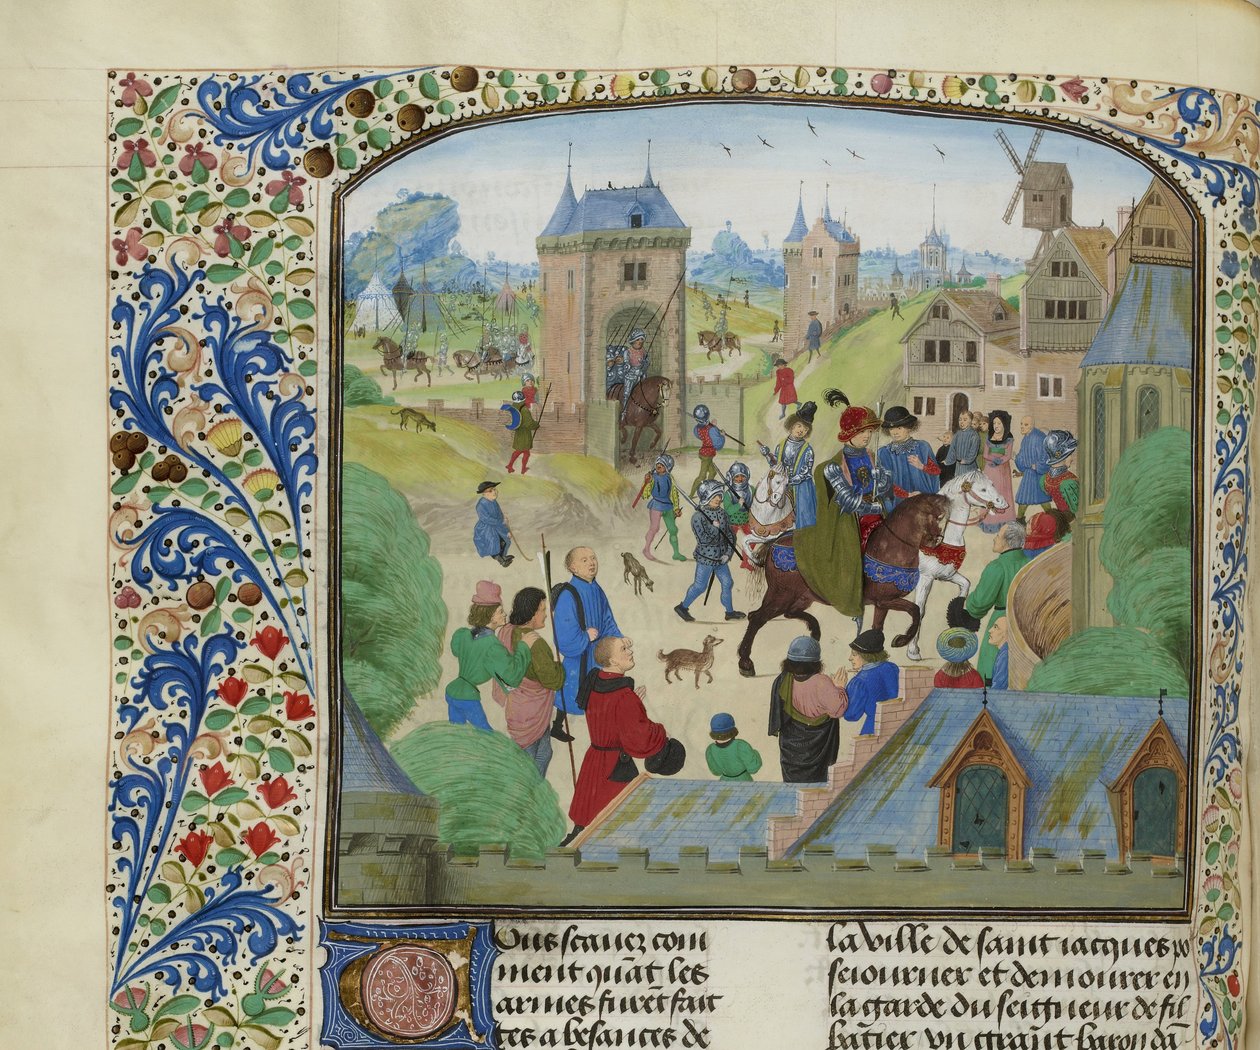 Vous scauez com
ment quãt les
armes furẽt fait
tes a besances de
la ville de saint iacques po
seiourner et demourer en
la garde du seigneur de fil
bãtier vn vaillant baron dã